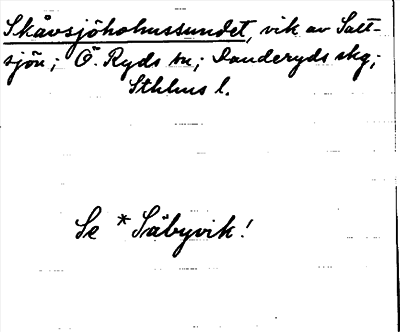 Skåvsjöholmssundet, vik av Salt-
sjön; Ö. Ryds sn; Danderyds skg;
Sthlms l.
Se *Säbyvik!